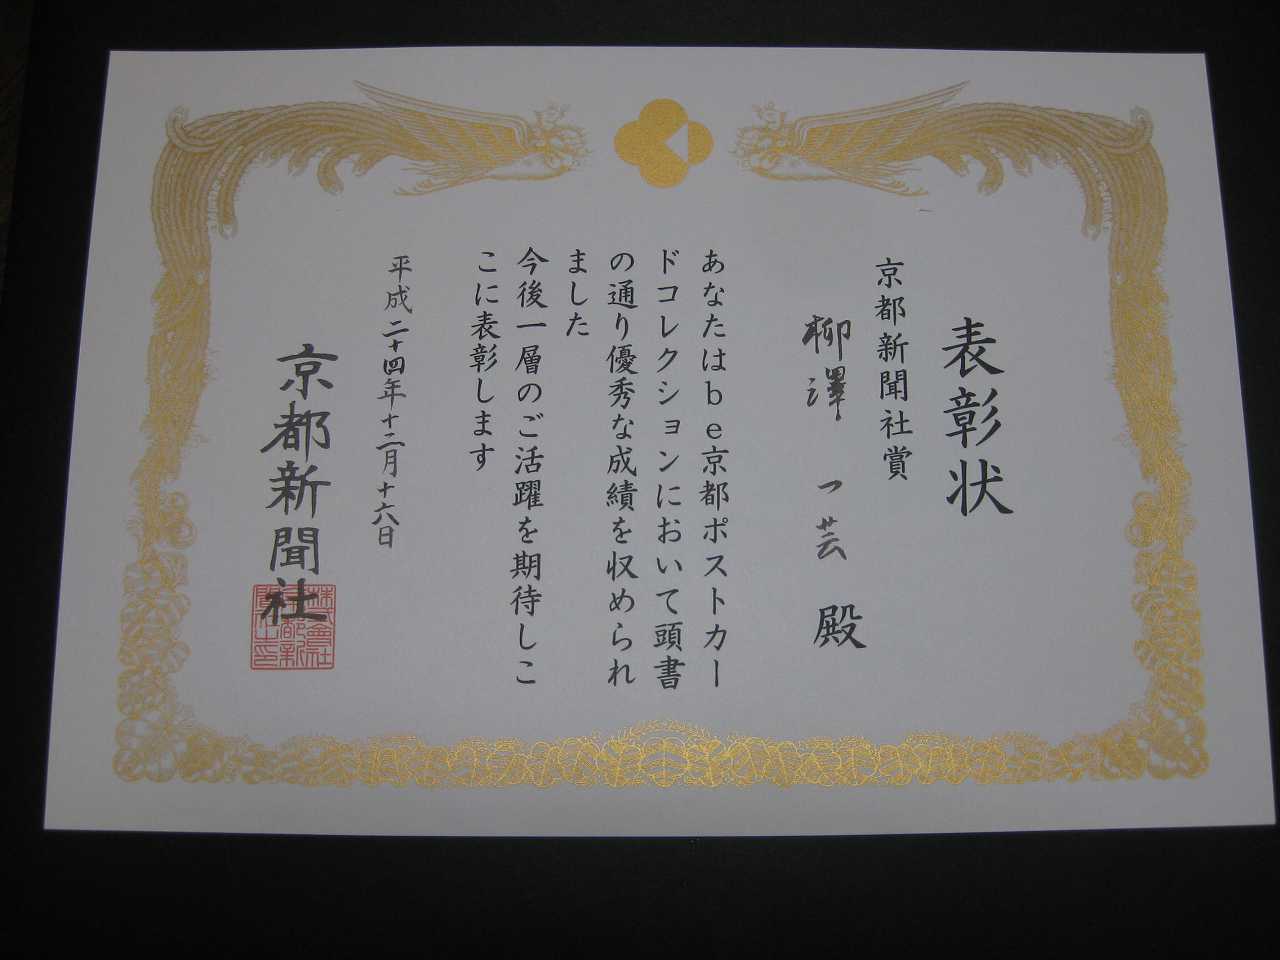 表彰状
京都新聞社賞
柳澤 一芸 殿
あなたはbe京都ポストカー
ドコレクションにおいて頭書
の通り優秀な成績を収められ
ました
今後一層のご活躍を期待しこ
こに表彰します
平成二十四年十二月十六日
京都新聞社